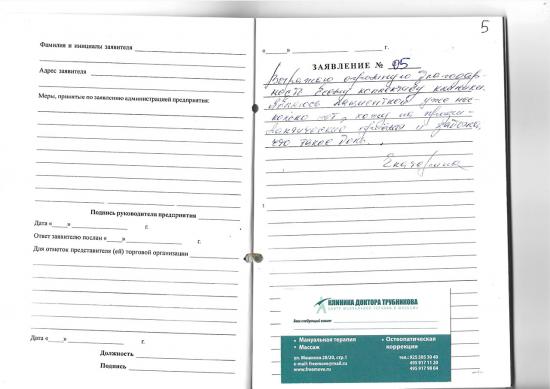 Фамилия и инициалы заявителя
Адрес заявителя
Меры, принятые по заявлению администрацией предприятия:
Подпись руководителя предприятия
Дата «____» г.
Ответ заявителю послан «____» г.
Для отметок представителя (ей) торговой организации
Дата «____» г.
Должность
Подпись
5
«____» г.
ЗАЯВЛЕНИЕ № 05
Выражаю огромную благодар-
ность всему коллективу клиники.
Являюсь пациенткой уже нес-
колько лет, хожу на
и
что такое боль.
Екатерина
КЛИНИКА ДОКТОРА ТРУБНИКОВА
ЦЕНТР МАНУАЛЬНОЙ ТЕРАПИИ И МАССАЖА
Ваш следующий визит:
• Мануальная терапия
• Массаж
• Остеопатическая
коррекция
ул. Мишина 28/20, стр.1
www.freemove.ru
тел.: 925 585 30 40
495 917 11 20
495 917 98 64